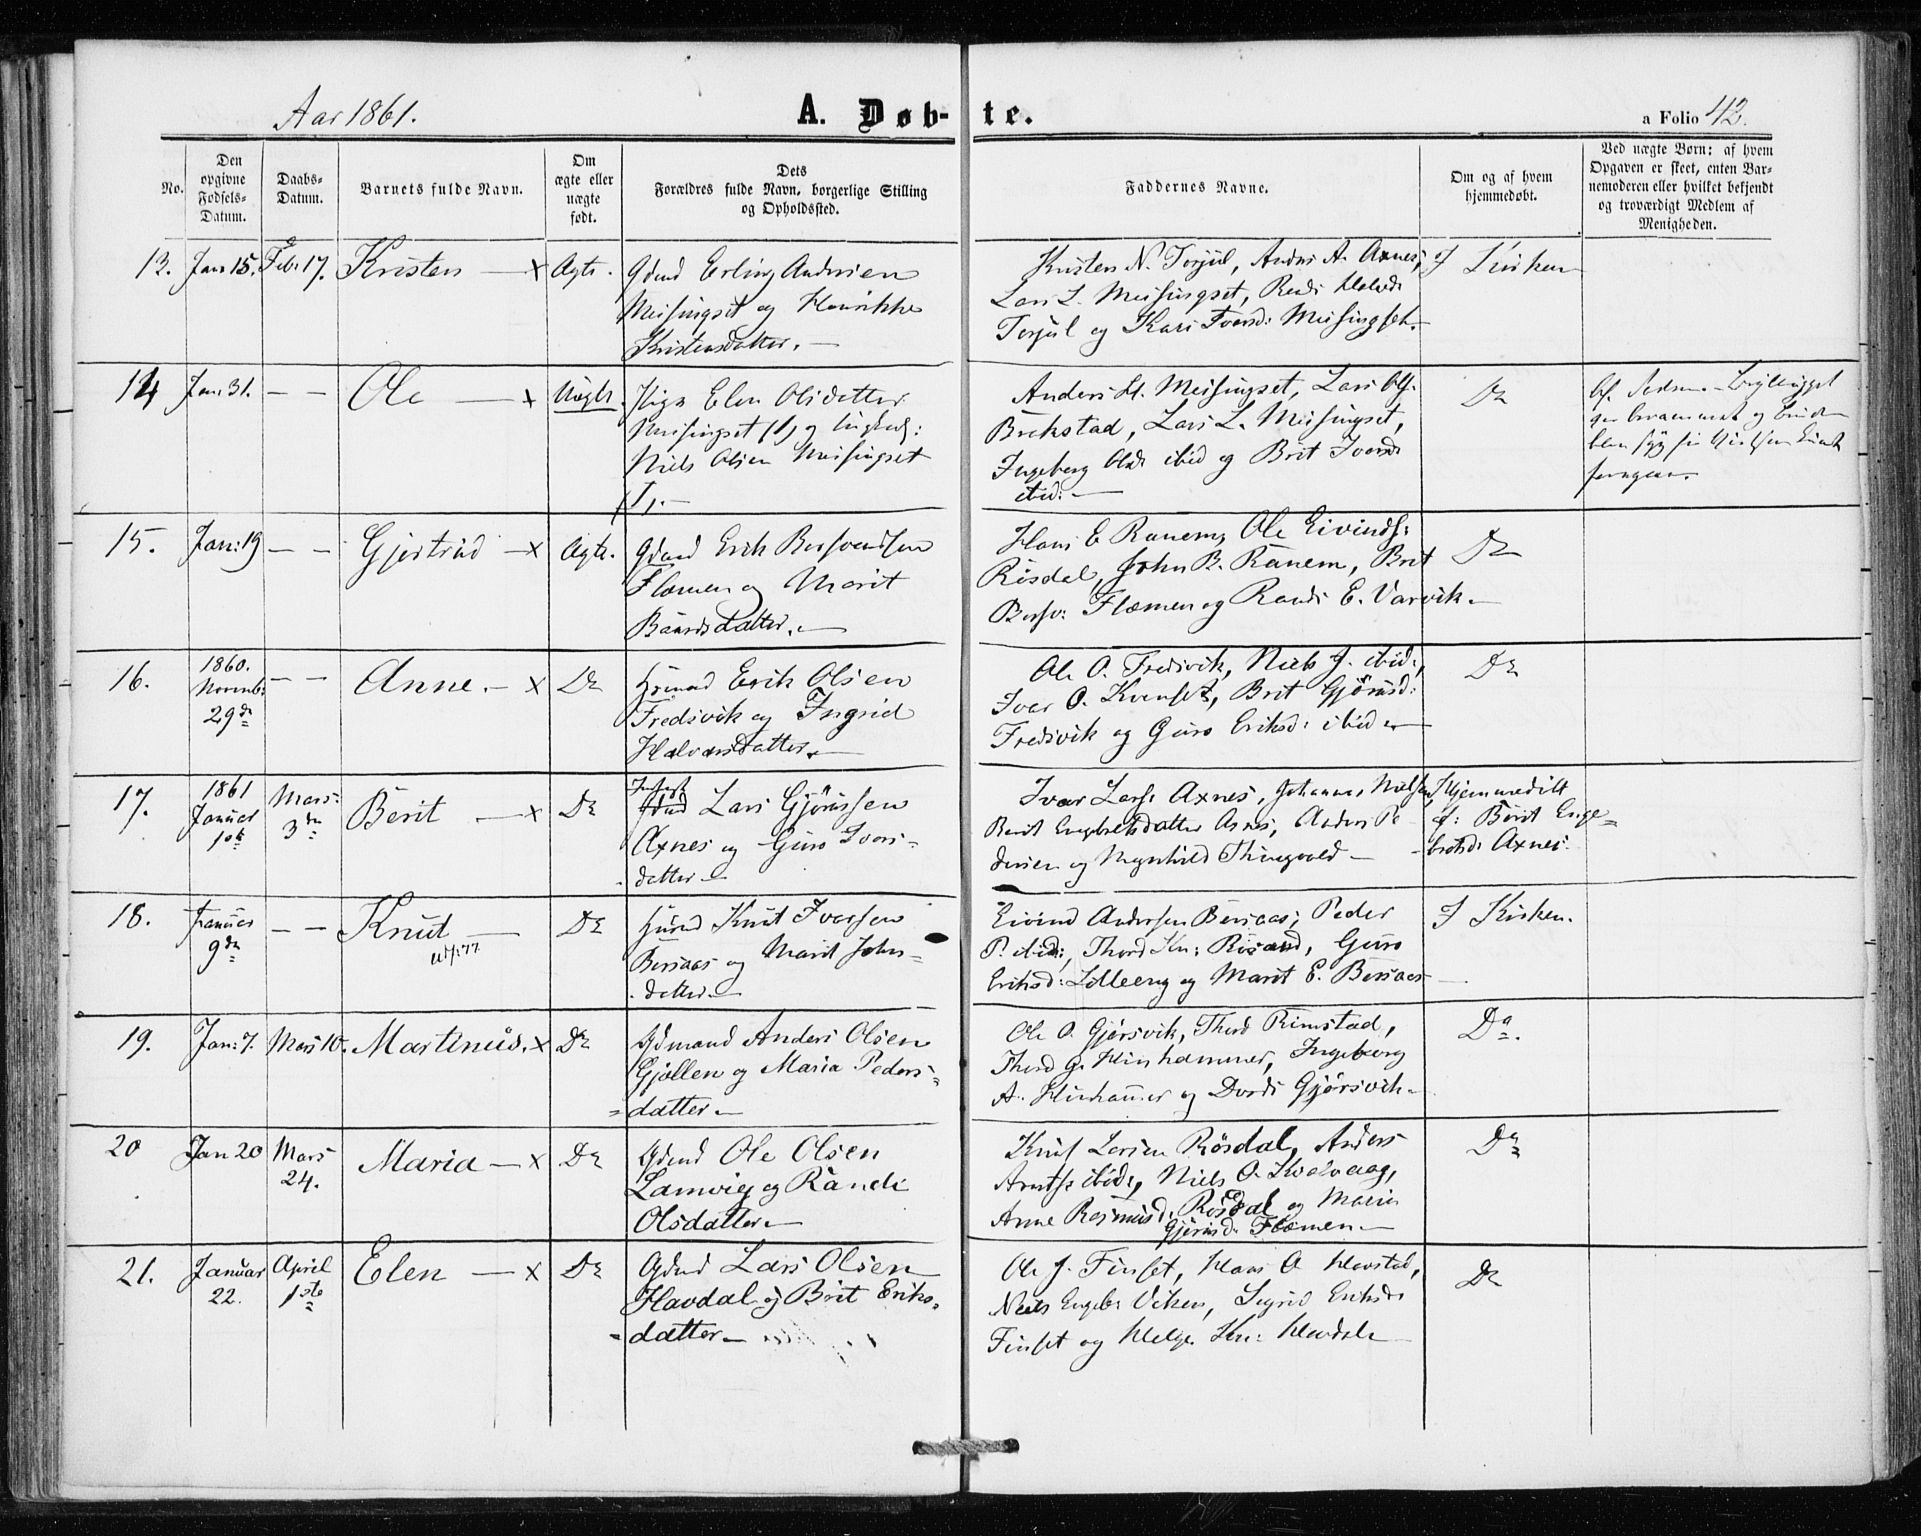 Aar 1861.
A. Døb-
te.
a Folio 42.
No.
Den
opgivne
Fødsels-
Datum.
Daabs-
Datum.
Barnets fulde Navn.
Om
ægte eller
uægte
født.
Dets
Forældres fulde Navn, borgerlige Stilling
og Opholdssted.
Faddernes Navne.
Om og af hvem
hjemmedøbt.
Ved uægte Børn: af hvem
Opgaven er skeet, enten Bar-
nemoderen eller hvilket bekjendt
og troværdigt Medlem af
Menigheden.
13. Jan 15. Feb. 17. Kristen — x Ægte. Gdmd Erling Andersen
Meisingset og Henrikke
Kristensdatter. —
Kristen N. Torjul, Anders A. Axnes,
Lars L. Meisingset, Randi Halvd:
Torjul og Kari Iversd: Meisingset. —
I Kirken
14 Jan: 31. — — Ole — x Uægte. Pige Elen Olsdatter
Meisingset (1) og Ungkarl:
Niels Olsen Meisingset
(1). —
Anders H. Meisingset, Lars Ols.
Brekstad, Lars L. Meisingset,
Ingeborg Olsd: ibid og Brit Iversd:
ibid: —
Do
15. Jan: 19 — — Gjertrud — x Ægte. Gdmd Erik Bersvendsen
Flemmen og Marit
Baardsdatter. —
Hans E Ranem, Ole Eivinds:
Røsdal, John B. Ranem, Brit
Bersv: Flemmen og Randi E. Varvik. —
Do
16. 1860.
Novemb:
29de — — Anne. — x Do Husmd Erik Olsen
Fredsvik og Ingrid
Halvorsdatter. —
Ole O. Fredsvik, Niels J. ibid:,
Ivar O. Kvenset, Brit Gjørusd:
Fredsvik og Guro Eriksd: ibid —
Do
17. 1861
Januar
1ste Mars:
3de Berit — x Do Inderst
Lars Gjørussen
Axnes og Guro Ivers-
datter —
Ivar Lars: Axnes, Johannes Nielsen,
Berit Engebretsdatter Axnes, Anders Pe-
dersen og Ragnhild Thingvold —
Hjemmedøbt
af: Berit Enge-
bretsd: Axnes.
18. Januar
9de — — Knut —
Utf: 77 Do Husmd Knut Iversen
Bersaas og Marit Johns-
datter. —
Eivind Andersen Bersaas, Peder
P. ibid:, Thord Kn: Risand, Guro
Eriksd: Lilleeng og Marit E. Bersaas —
I Kirken.
19. Jan: 7. Mars 10. Martinus. x Do Gdmand Anders Olsen
Gjøllen og Maria Peders-
datter —
Ole O. Gjørsvik, Thord Rimstad,
Thord G. Hinhammer, Ingeborg
A. Hinhammer og Dordi Gjørsvik —
Do.
20 Jan 20 Mars
24. Maria — x Do Gdmd Ole Olsen
Lamvig og Randi
Olsdatter —
Knut Larsen Røsdal, Anders
Arnts: ibid:, Niels O. Kvalvaag,
Anne Rasmusd: Røsdal og Marit
Gjørusd: Flemmen. —
Do
21. Januar
22. April
1ste Elen — x Do Gdmd Lars Olsen
Havdal og Brit Eriks-
datter —
Ole J. Finset, Hans O Havstad,
Niels Engebr: Viken, Sigrid Eriksd:
Finset og Helge Kn: Havdal —
Do